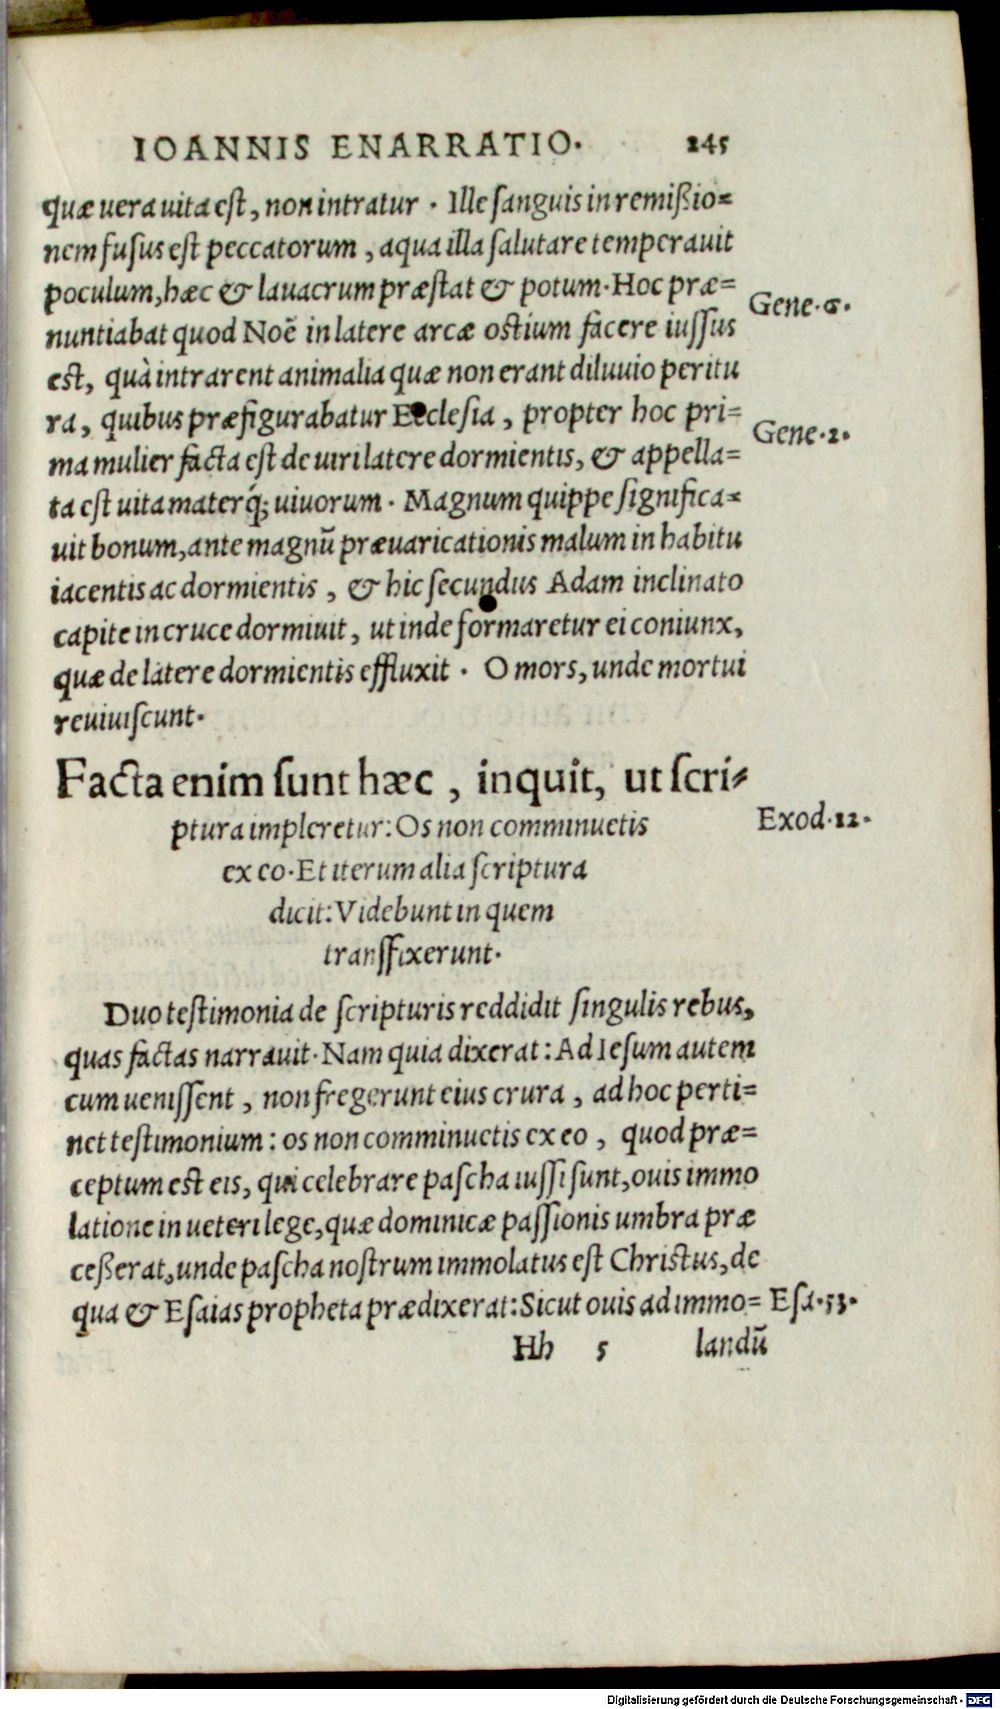 IOANNIS ENARRATIO. 245
quæ uera uita est, non intratur. Ille sanguis in remißio=
nem fusus est peccatorum, aqua illa salutare temperauit
poculum, hæc & lauacrum præstat & potum. Hoc præ=
Gene. 6.
nuntiabat quod Noē in latere arcæ ostium facere iussus
est, quà intrarent animalia quæ non erant diluuio peritu
ra, quibus præfigurabatur Ecclesia, propter hoc pri=
Gene. 2.
ma mulier facta est de uiri latere dormientis, & appella=
ta est uita materq́; uiuorum. Magnum quippe significa=
uit bonum, ante magnū præuaricationis malum in habitu
iacentis ac dormientis, & hic secundus Adam inclinato
capite in cruce dormiuit, ut inde formaretur ei coniunx,
quæ de latere dormientis effluxit. O mors, unde mortui
reuiuiscunt.
Facta enim sunt hæc, inquit, ut scri=
ptura impleretur: Os non comminuetis
Exod. 12.
ex eo. Et iterum alia scriptura
dicit: Videbunt in quem
transfixerunt.
Duo testimonia de scripturis reddidit singulis rebus,
quas factas narrauit. Nam quia dixerat: Ad Iesum autem
cum uenissent, non fregerunt eius crura, ad hoc perti=
net testimonium: os non comminuetis ex eo, quod præ=
ceptum est eis, qui celebrare pascha iussi sunt, ouis immo
latione in ueteri lege, quæ dominicæ passionis umbra præ
ceßerat, unde pascha nostrum immolatus est Christus, de
qua & Esaias propheta prædixerat: Sicut ouis ad immo=
Esa. 53.
Hh 5 landū
Digitalisierung gefördert durch die Deutsche Forschungsgemeinschaft - DFG